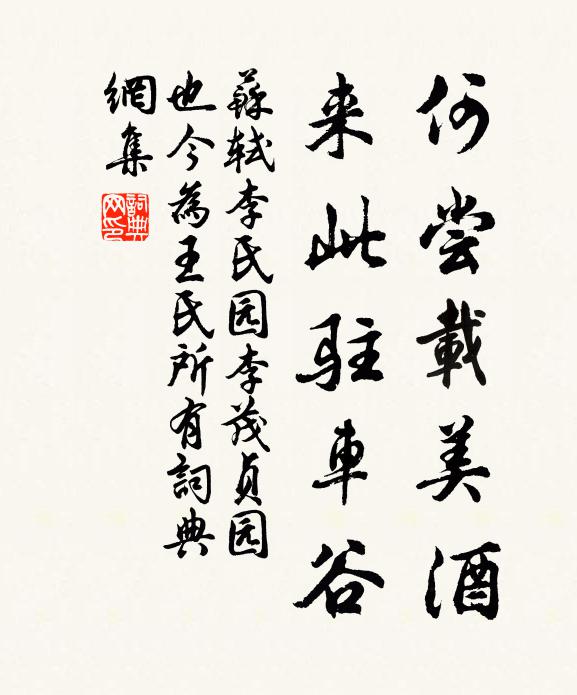 何尝載美酒
来此駐車谷
蘇轼李氏园李茂贞园
也今為王氏所有詞典
網集
詞典网印